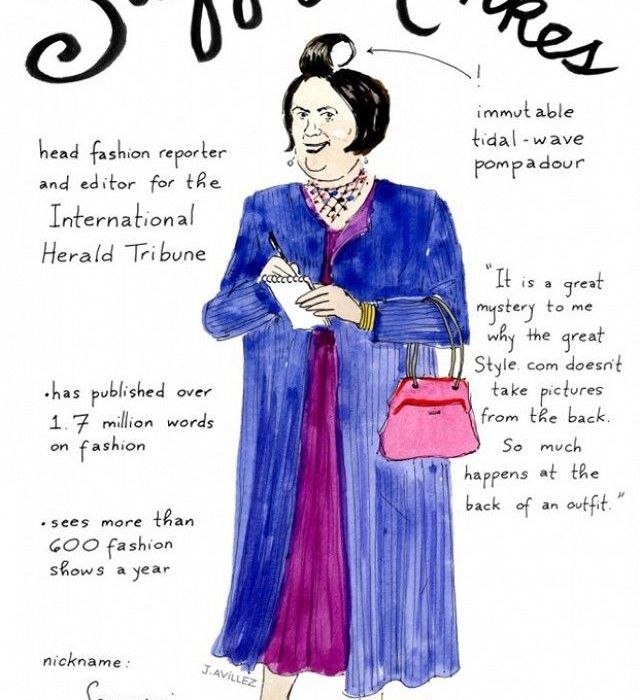 head fashion reporter
and editor for the
International
Herald Tribune
!
immutable
tidal-wave
pompadour
"It is a great
mystery to me
why the great
Style.com doesn't
take pictures
from the back.
So much
happens at the
back of an outfit."
•has published over
1.7 million words
on fashion
•sees more than
600 fashion
shows a year
nickname:
J.AVILLEZ